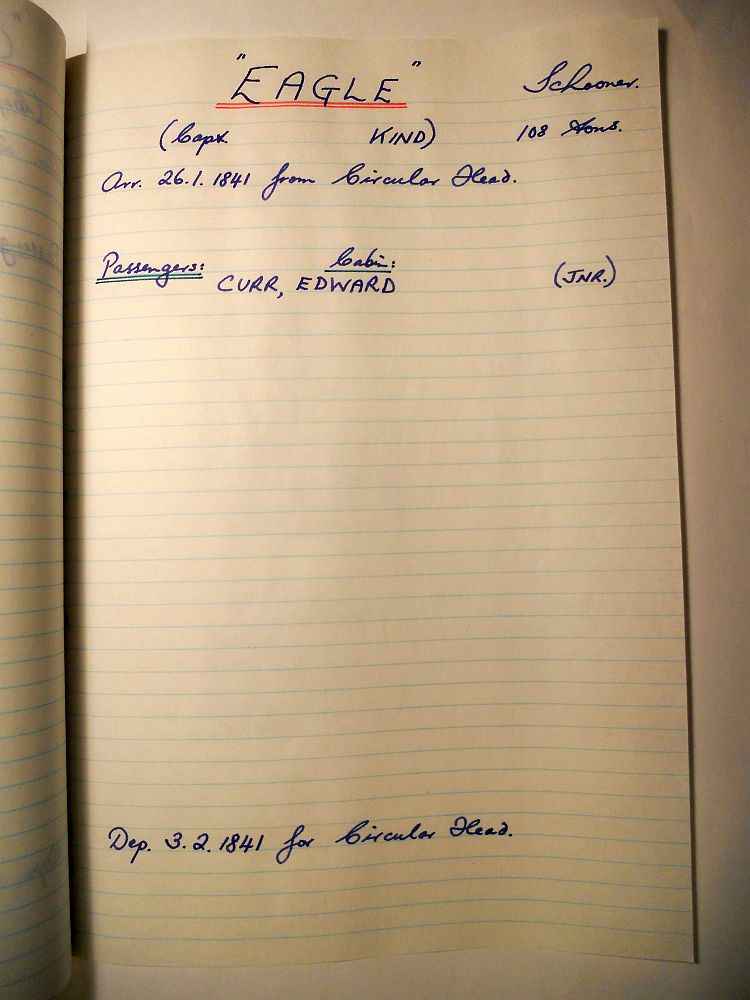 "EAGLE" Schooner.
(Capt. KIND) 108 Tons.
Arr. 26.1.1841 from Circular Head.
Passengers: Cabin:
CURR, EDWARD (JNR.)
Dep. 3.2.1841 for Circular Head.